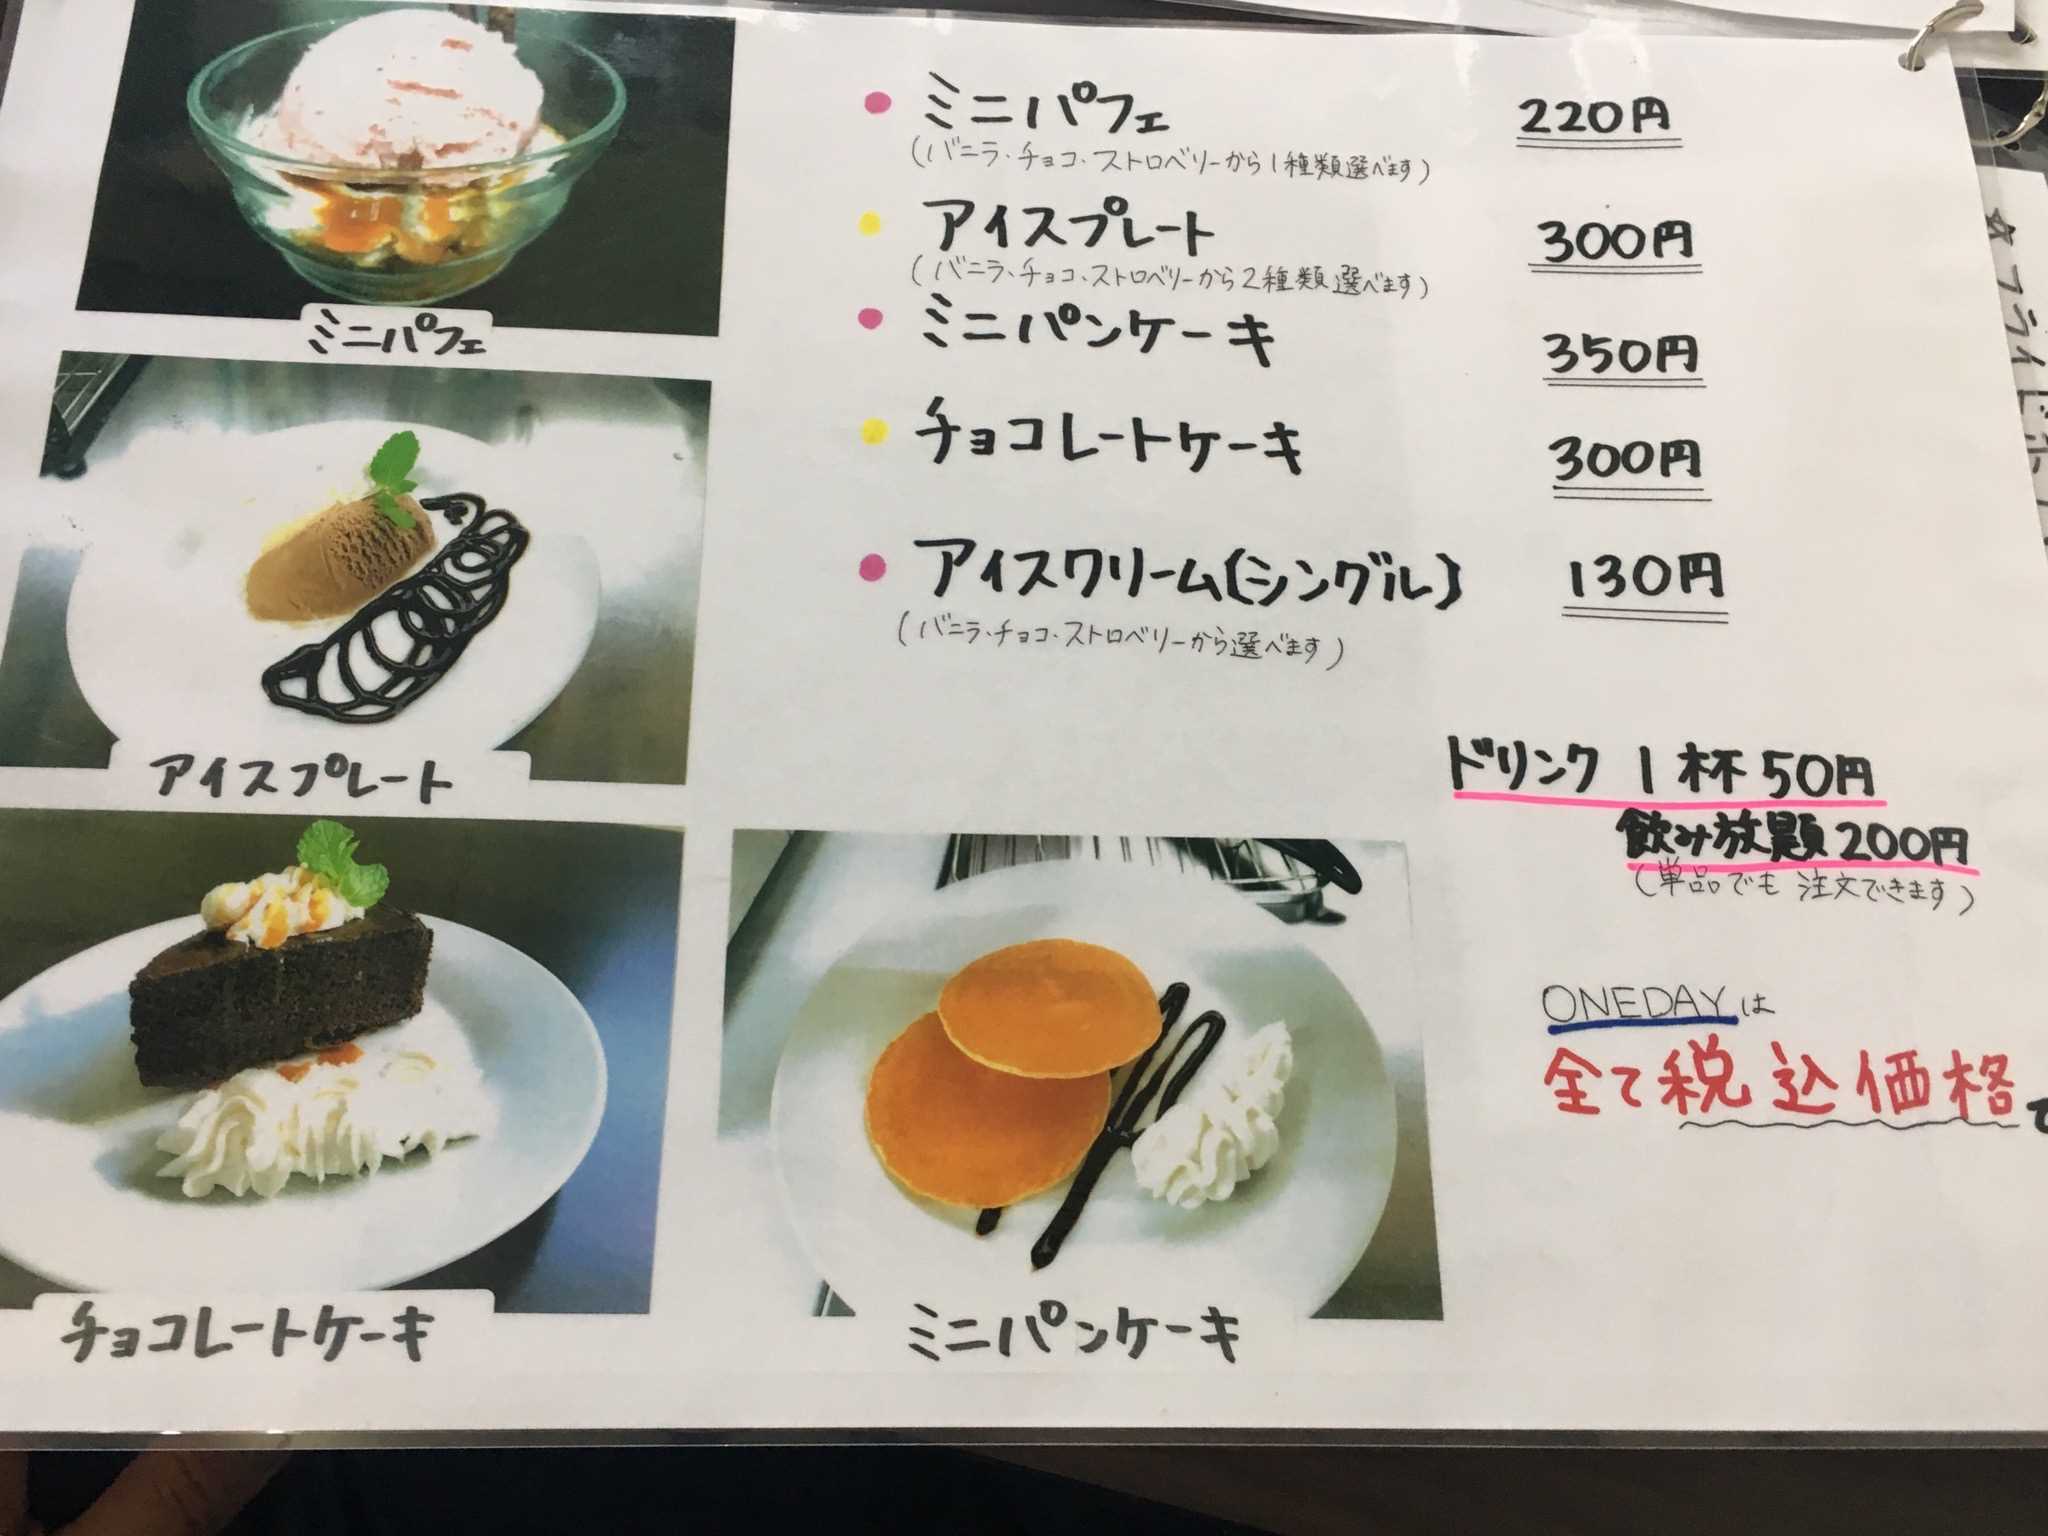 ミニパフェ 220円
(バニラ・チョコ・ストロベリーから1種類選べます)
アイスプレート 300円
(バニラ・チョコ・ストロベリーから2種類選べます)
ミニパンケーキ 350円
チョコレートケーキ 300円
アイスクリーム(シングル) 130円
(バニラ・チョコ・ストロベリーから選べます)
ミニパフェ
アイスプレート
チョコレートケーキ
ミニパンケーキ
ドリンク 1杯 50円
飲み放題 200円
(単品でも注文できます)
ONEDAYは
全て税込価格で
☆フライドポ